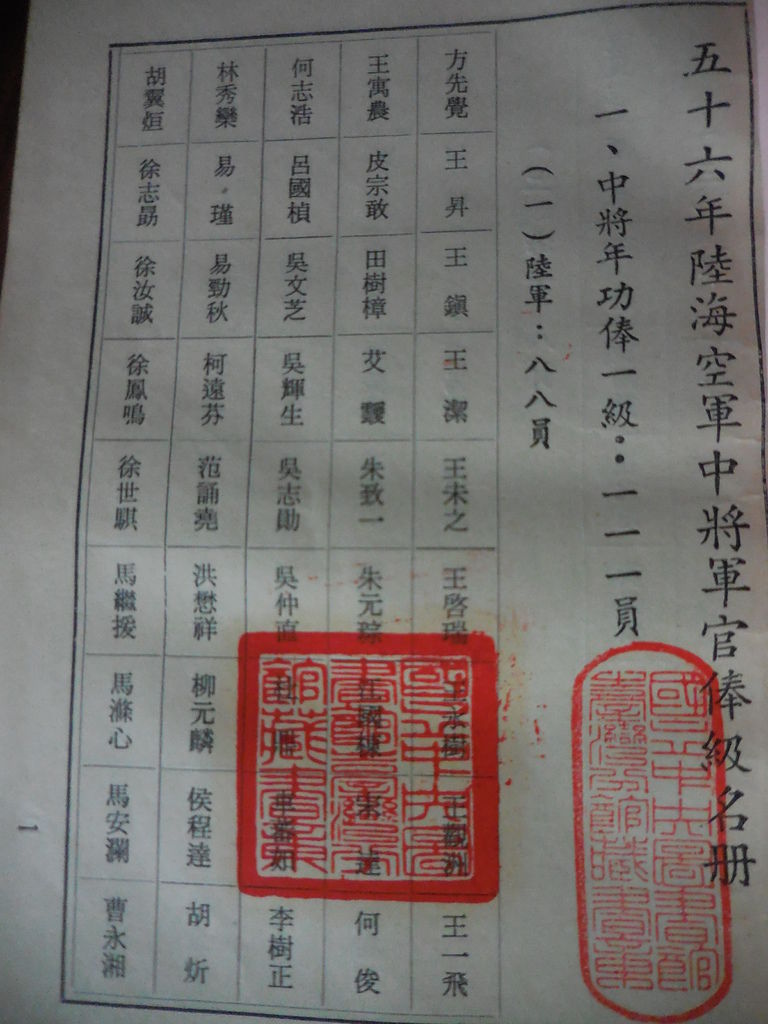 五十六年陸海空軍中將軍官俸級名册
一、中將年功俸一級：一一一員
(一)陸軍：八八員
方先覺 王昇 王鎭 王潔 王未之 王啓瑞 王永樹 王觀洲 王一飛
王寓農 皮宗敢 田樹樟 艾靉 朱致一 朱元琮 江國棟 宋達 何俊
何志浩 呂國楨 吳文芝 吳輝生 吳志勛 吳仲直 李樹正
林秀欒 易瑾 易勁秋 柯遠芬 范誦堯 洪懋祥 柳元麟 侯程達 胡炘
胡翼烜 徐志勗 徐汝誠 徐鳳鳴 徐世騏 馬繼援 馬滌心 馬安瀾 曹永湘
一
國立中央圖書館臺灣分館藏書章
國立中央圖書館臺灣分館藏書章